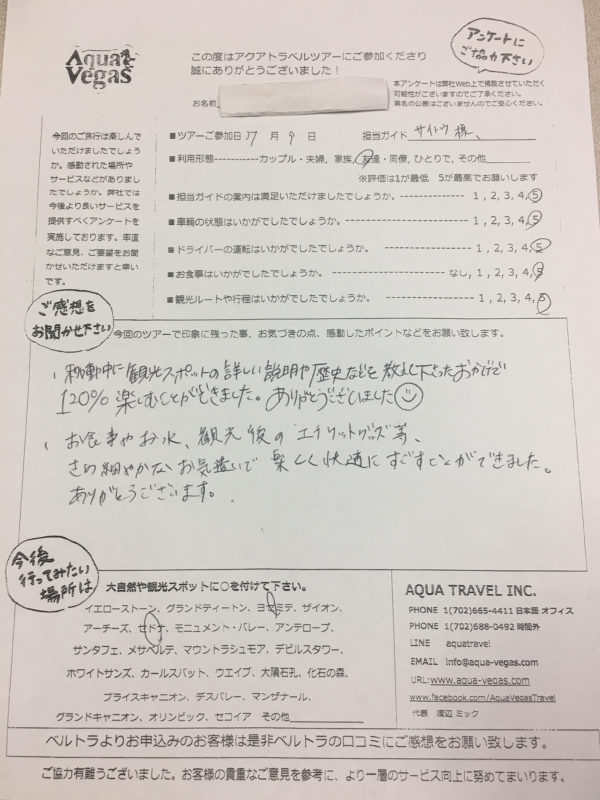 Aqua Vegas
この度はアクアトラベルツアーにご参加くださり
誠にありがとうございました！
アンケートに
ご協力下さい
本アンケートは弊社Web上で掲載させていただく
可能性がございますのでご了承ください。
実名の公表はございませんのでご安心ください。
お名前
今回のご旅行は楽しんで
いただけましたでしょう
か。感動された場所や
サービスなどがありまし
たでしょうか。弊社では
今後より良いサービスを
提供すべくアンケートを
実施しております。率直
なご意見、ご要望をお聞
かせいただけますと幸い
です。
■ツアーご参加日 17 月 9 日 担当ガイド サイトウ 様、
■利用形態-----------カップル・夫婦, 家族, 友達・同僚, ひとりで, その他
※評価は1が最低 5が最高でお願いします
■担当ガイドの案内は満足いただけましたでしょうか。 --------------- 1, 2, 3, 4, 5
■車輌の状態はいかがでしたでしょうか。 ---------------- 1, 2, 3, 4, 5
■ドライバーの運転はいかがでしたでしょうか。 ---------------- 1, 2, 3, 4, 5
■お食事はいかがでしたでしょうか。 ---------------- なし, 1, 2, 3, 4, 5
■観光ルートや行程はいかがでしたでしょうか。 ---------------- 1, 2, 3, 4, 5
ご感想を
お聞かせ下さい
今回のツアーで印象に残った事、お気づきの点、感動したポイントなどをお願い致します。
移動中に観光スポットの詳しい説明や歴史などを教えて下さったおかげで
120% 楽しむことができました。ありがとうございました
お食事やお水、観光後の エチケットグッズ等、
きめ細やかなお気遣いで 楽しく快適にすごすことができました。
ありがとうございます。
今後
行ってみたい
場所は
大自然や観光スポットに○を付けて下さい。
イエローストーン、グランドティートン、ヨセミテ、ザイオン、
アーチーズ、セドナ、モニュメント・バレー、アンテロープ、
サンタフェ、メサベルデ、マウントラシュモア、デビルスタワー、
ホワイトサンズ、カールスバット、ウエイブ、大隕石孔、化石の森、
ブライスキャニオン、デスバレー、マンザナール、
グランドキャニオン、オリンピック、セコイア その他
AQUA TRAVEL INC.
PHONE 1(702)665-4411 日本語 オフィス
PHONE 1(702)688-0492 時間外
LINE aquatravel
EMAIL info@aqua-vegas.com
URL:www.aqua-vegas.com
www.facebook.com/AquaVegasTravel
代表 渡辺 ミック
ベルトラよりお申込みのお客様は是非ベルトラの口コミにご感想をお願い致します。
ご協力有難うございました。お客様の貴重なご意見を参考に、より一層のサービス向上に努めてまいります。